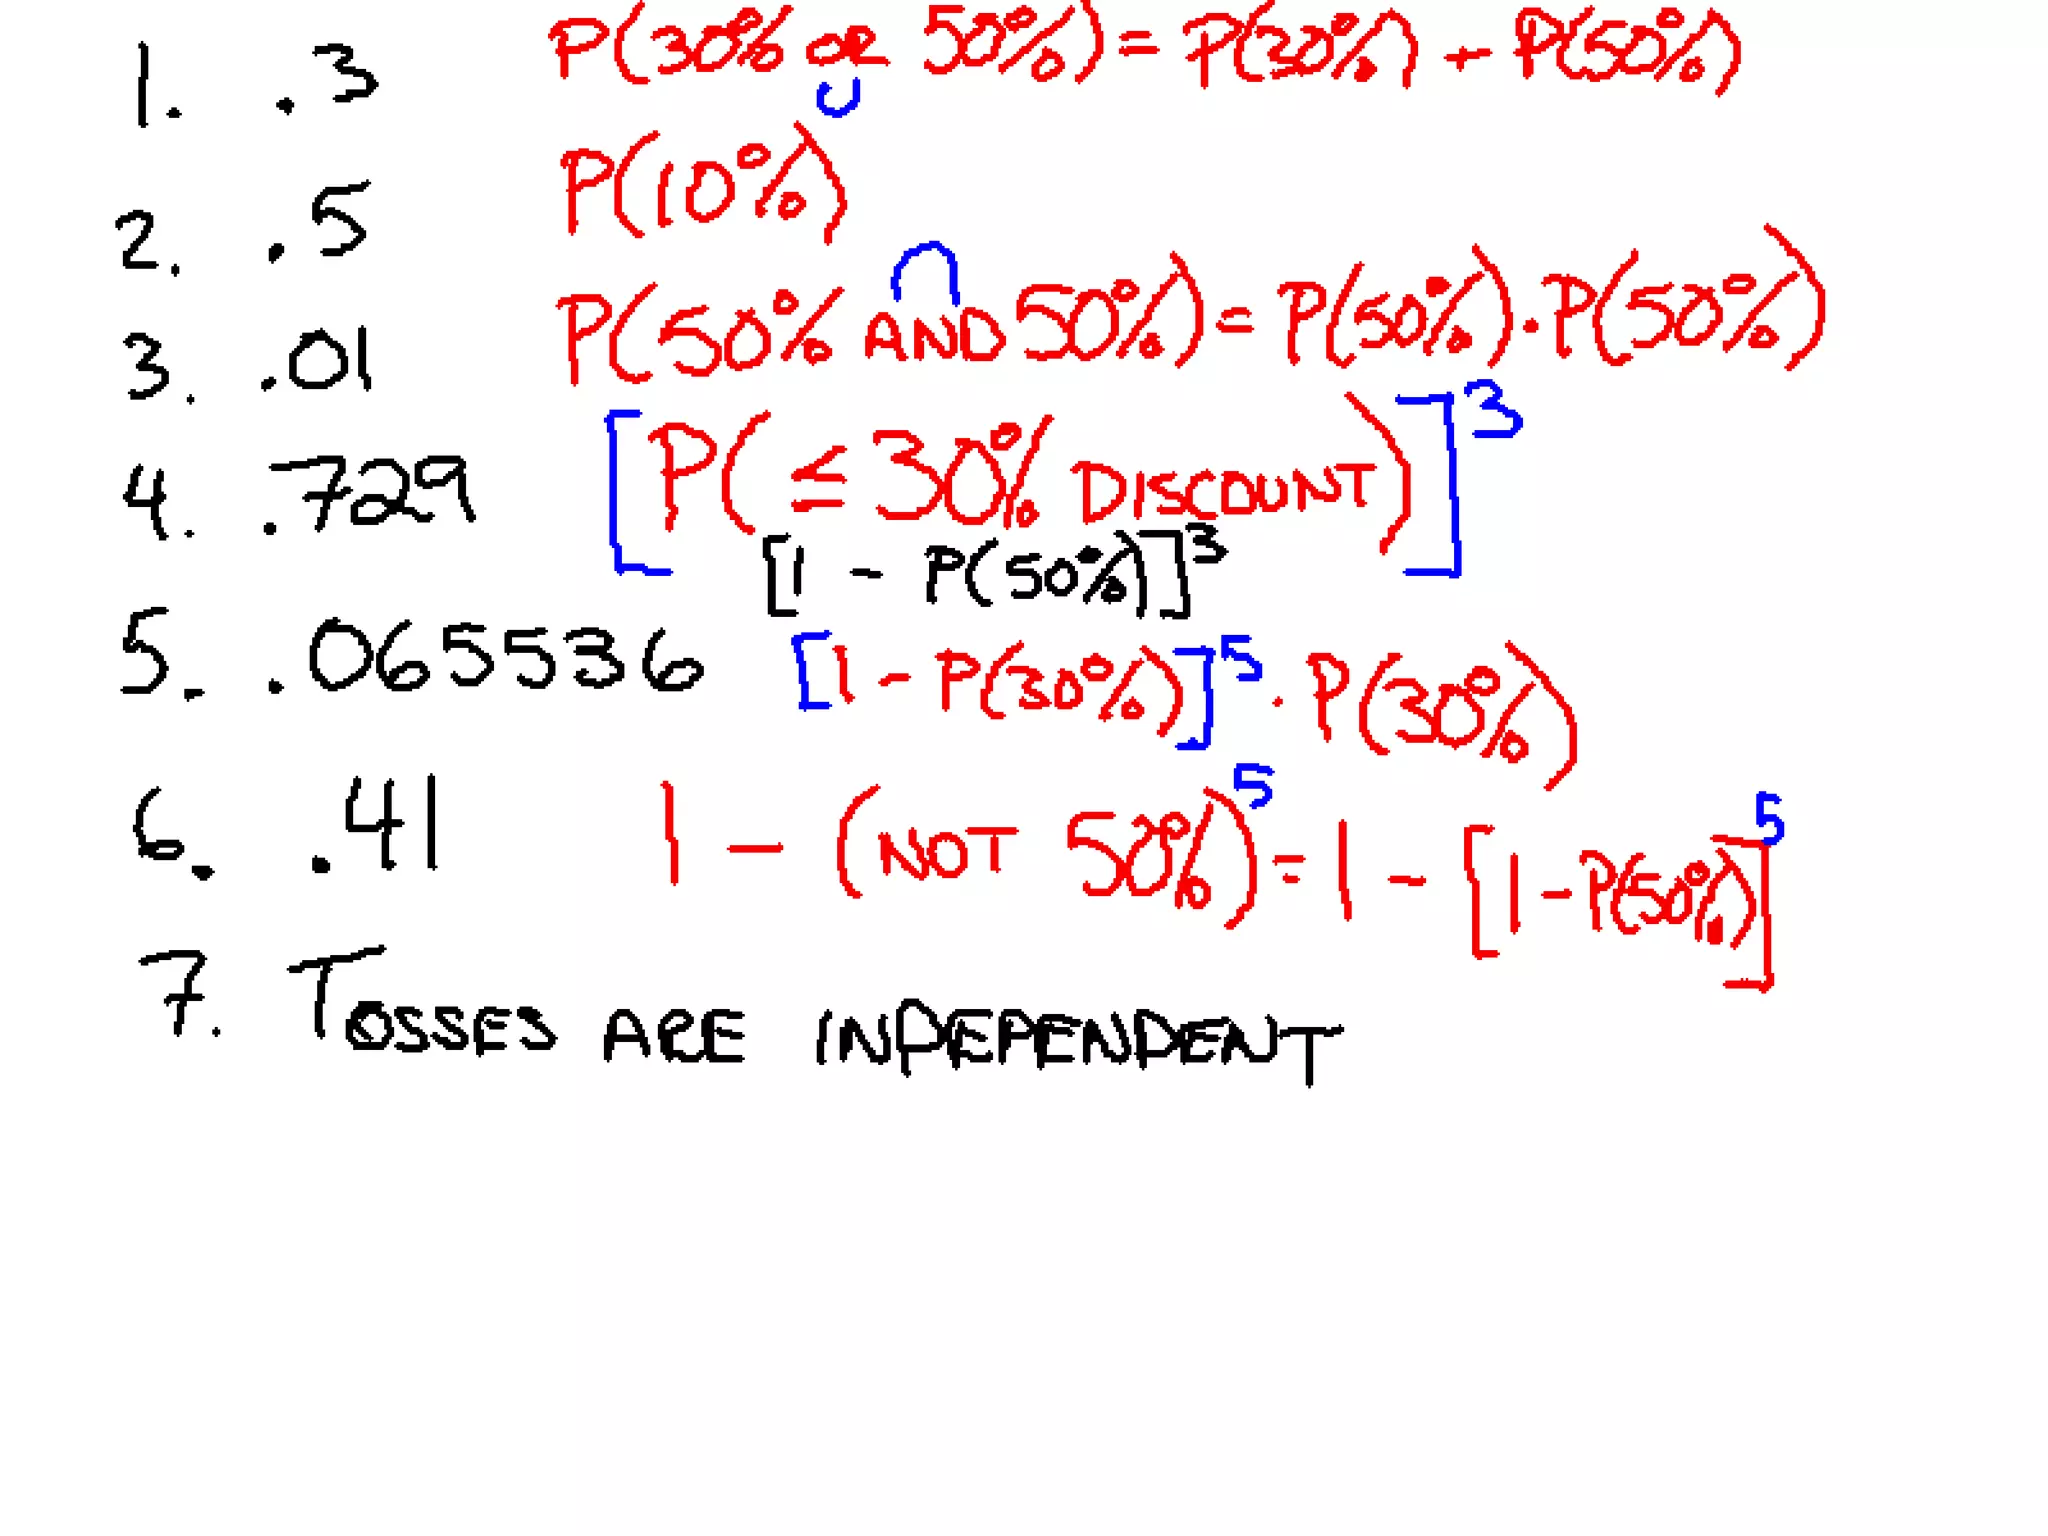 1. .3 P(30% OR 50%) = P(30%) + P(50%)
∪
2. .5 P(10%)
∩
3. .01 P(50% AND 50%) = P(50%) · P(50%)
4. .729 [P(≤ 30% DISCOUNT)]³
[1 - P(50%)]³
5. .065536 [1 - P(30%)]⁵ · P(30%)
6. .41 1 - (NOT 50%)⁵ = 1 - [1 - P(50%)]⁵
7. TOSSES ARE INDEPENDENT